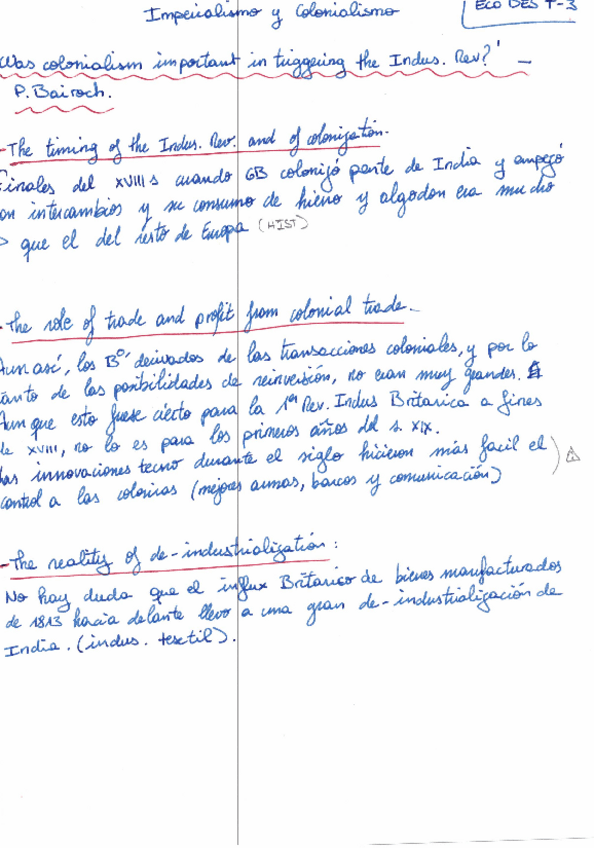 Imperialismo y Colonialismo
ECO DES T-3
Was colonialism important in triggering the Indus. Rev?' -
P. Bairoch.
-The timing of the Indus. Rev. and of colonization.
Finales del XVIII s cuando GB colonizó parte de India y empezó
on intercambios y su consumo de hierro y algodon era mucho
> que el del resto de Europa (HIST)
-The role of trade and profit from colonial trade.
Aun así, los Bº' derivados de las transacciones coloniales, y por lo
tanto de las posibilidades de reinversión, no eran muy grandes.
Aunque esto fuese cierto para la 1ª Rev. Indus Britanica a fines
de XVIII, no lo es para los primeros años del s. XIX.
Las innovaciones tecno durante el siglo hicieron más facil el
control a las colonias (mejores armas, barcos y comunicación)
-The reality of de-industrialization:
No hay duda que el influx Britanico de bienes manufacturados
de 1813 hacia delante llevo a una gran de-industrialización de
India. (indus. textil).